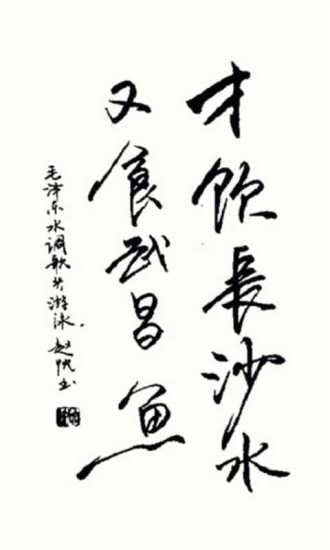 才饮長沙水
又食武昌魚
毛泽东水调歌头游泳 赵忱书